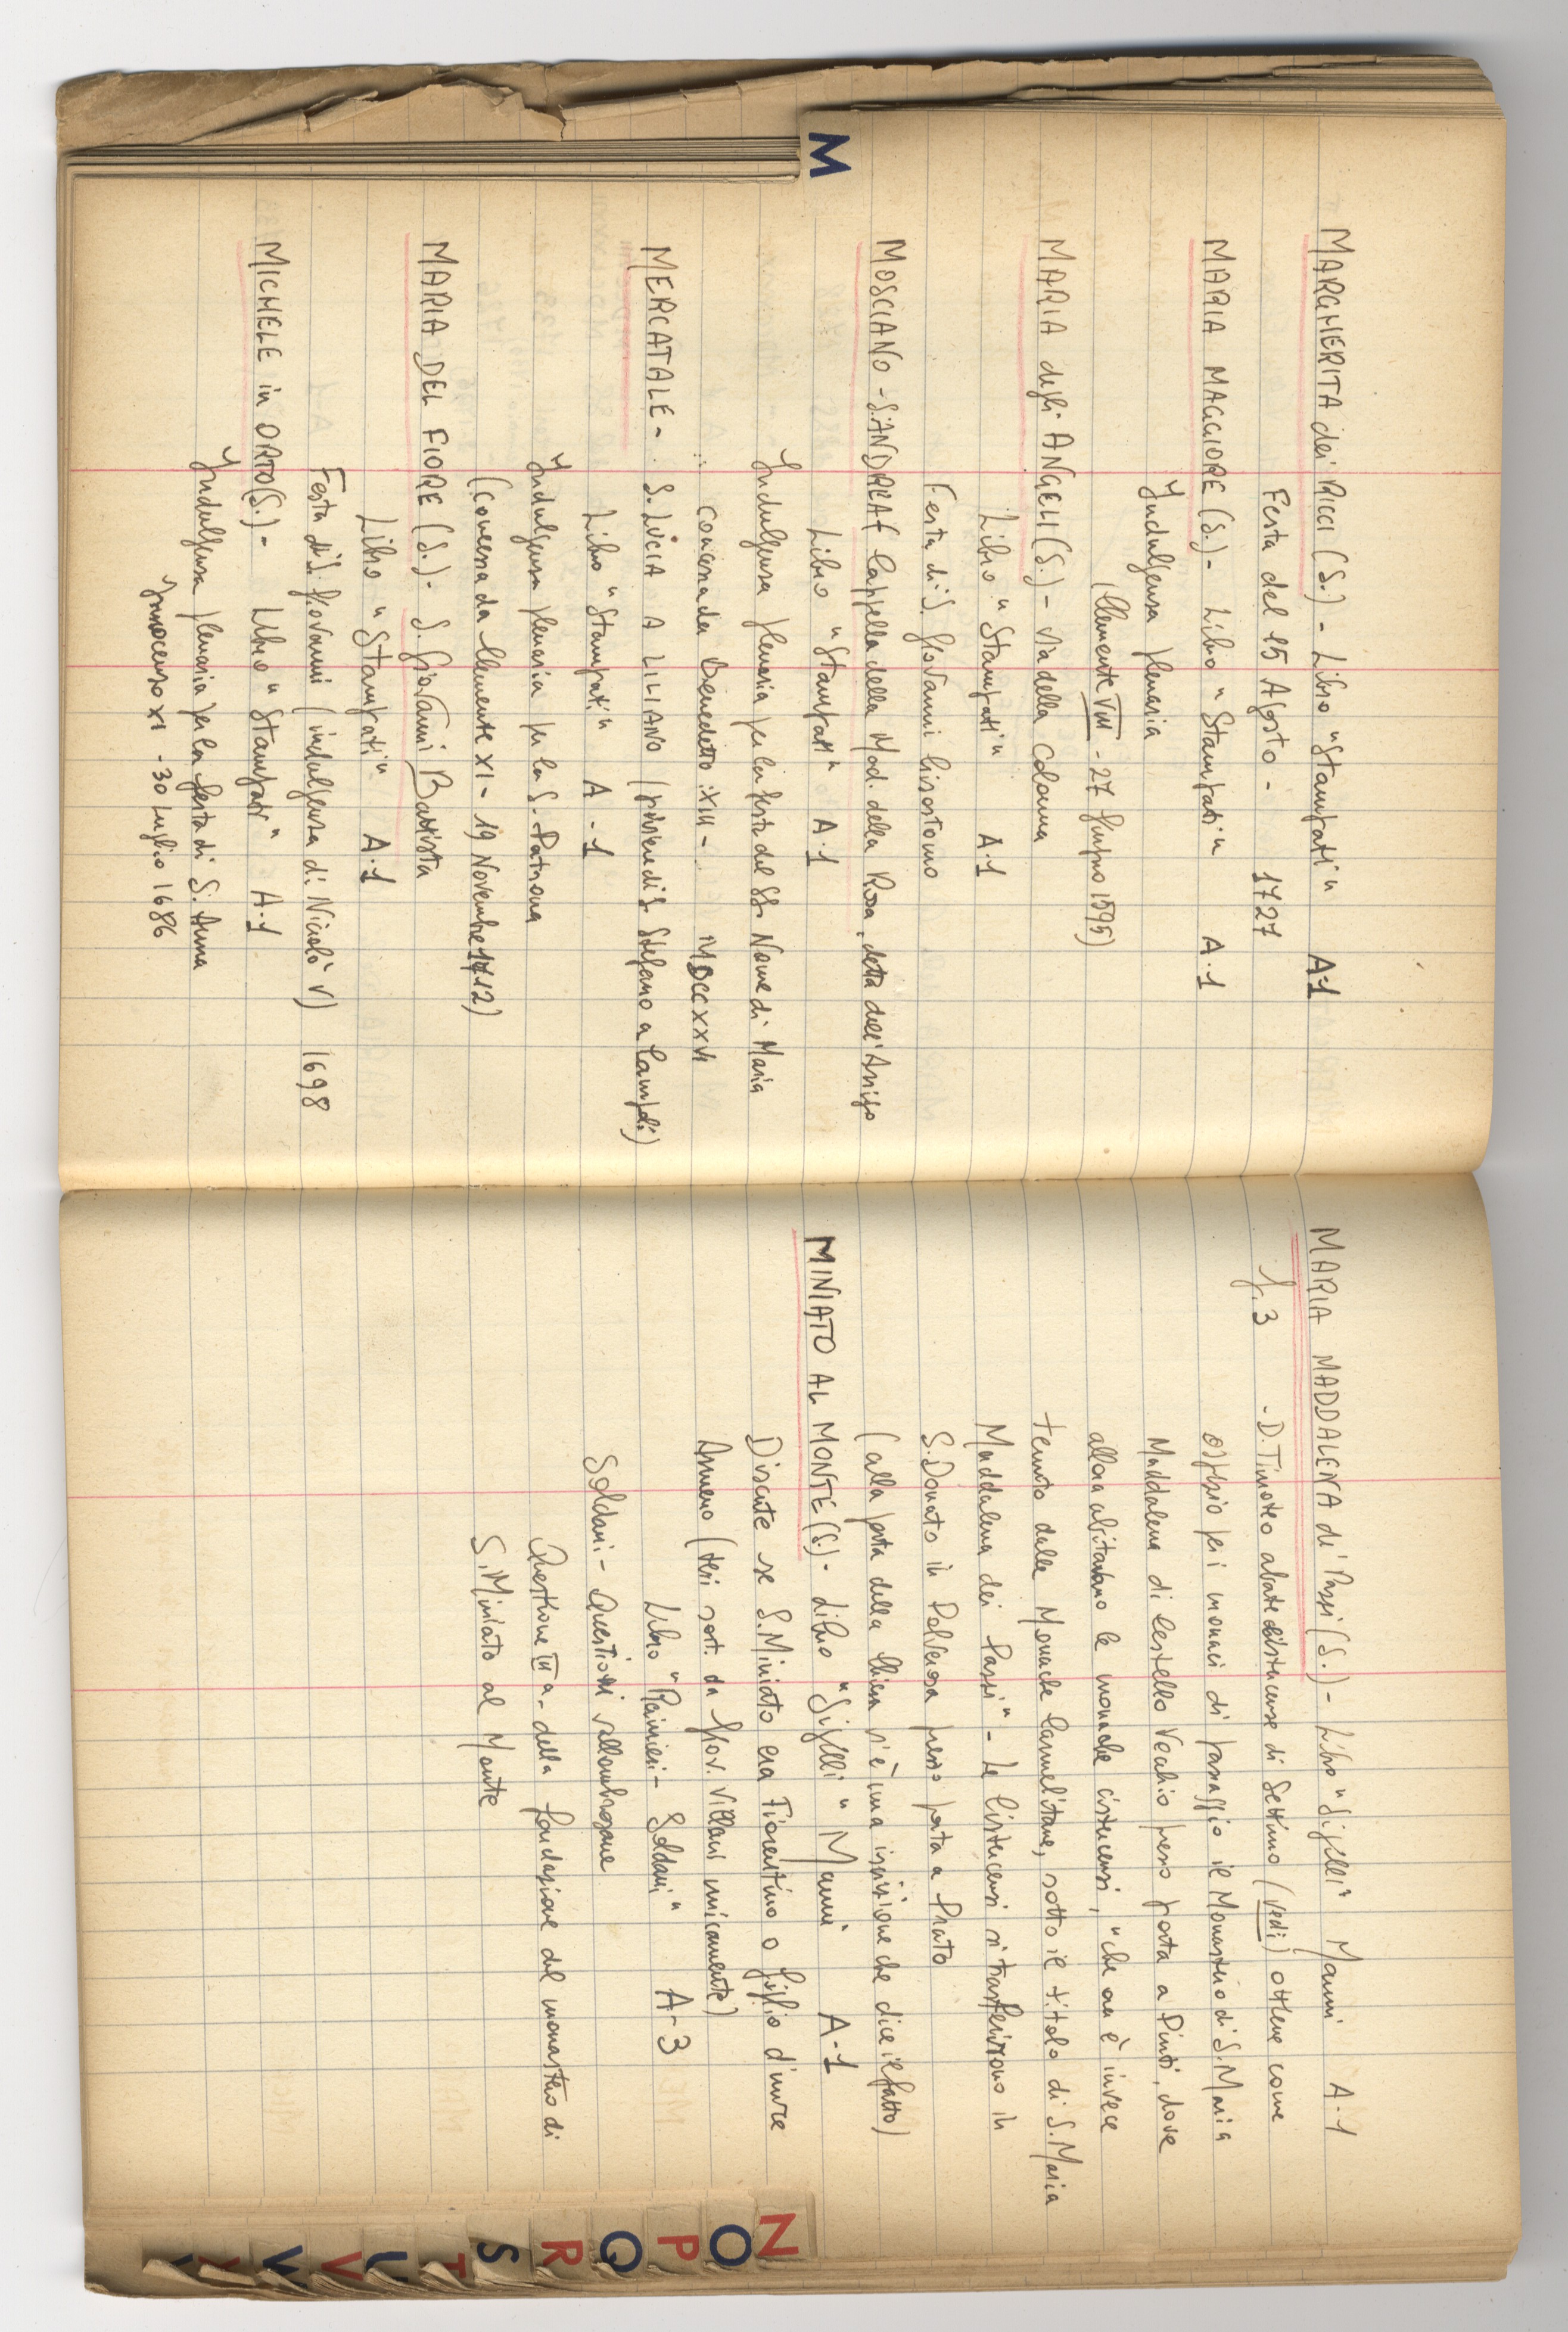 M
MARGHERITA dei RICCI (S.) - Libro "Stampati" A-1
Festa del 15 Agosto - 1727
MARIA MAGGIORE (S.) - Libro "Stampati" A-1
Indulgenza plenaria
(Clemente VIII - 27 Giugno 1595)
MARIA degli ANGELI (S.) - via della Colonna
Libro "Stampati" A-1
Festa di S. Giovanni Crisostomo
MOSCIANO - S. ANDREA Cappella della Mad. della Rosa, detta dell'Arrigo
Libro "Stampati" A-1
Indulgenza plenaria per la festa del SS. Nome di Maria
concessa da Benedetto XIII - MDCCXXVI
MERCATALE - S. LUCIA A LILIANO (pieve di S. Stefano a Campoli)
Libro "Stampati" A-1
Indulgenza plenaria per la S. Patrona
(concessa da Clemente XI - 19 Novembre 1712)
MARIA DEL FIORE (S.) - S. Giovanni Battista
Libro "Stampati" A-1
Festa di S. Giovanni (indulgenza di Nicolò V) 1698
MICHELE in ORTO (S.) - Libro "Stampati" A-1
Indulgenza plenaria per la festa di S. Anna
Innocenzo XI - 30 Luglio 1686
MARIA MADDALENA de' Pazzi (S.) - Libro "Sigilli" Manni A-1
f. 3 - D. Timoteo abate cistercense di Settimo (vedi) ottene come
ospizio per i monaci di passaggio il Monastero di S. Maria
Maddalena di Cestello Vecchio presso porta a Pinti, dove
allora abitavano le monache cistercensi, "che ora è invece
tenuto dalle Monache Carmelitane, sotto il titolo di S. Maria
Maddalena dei Pazzi" - Le Cistercensi si trasferirono in
S. Donato in Polverosa presso porta a Prato
(alla porta della Chiesa v'è una iscrizione che dice il fatto)
MINIATO AL MONTE (S.) - Libro "Sigilli" Manni A-1
Discute se S. Miniato era Fiorentino o figlio d'un re
Armeno (tesi sost. da Giov. Villani unicamente)
Libro "Rainieri - Soldani" A-3
Soldani - Questioni vallombrosane
Questione IIIa - della fondazione del monastero di
S. Miniato al Monte
N
O
P
Q
R
S
T
U
V
W
X
Y